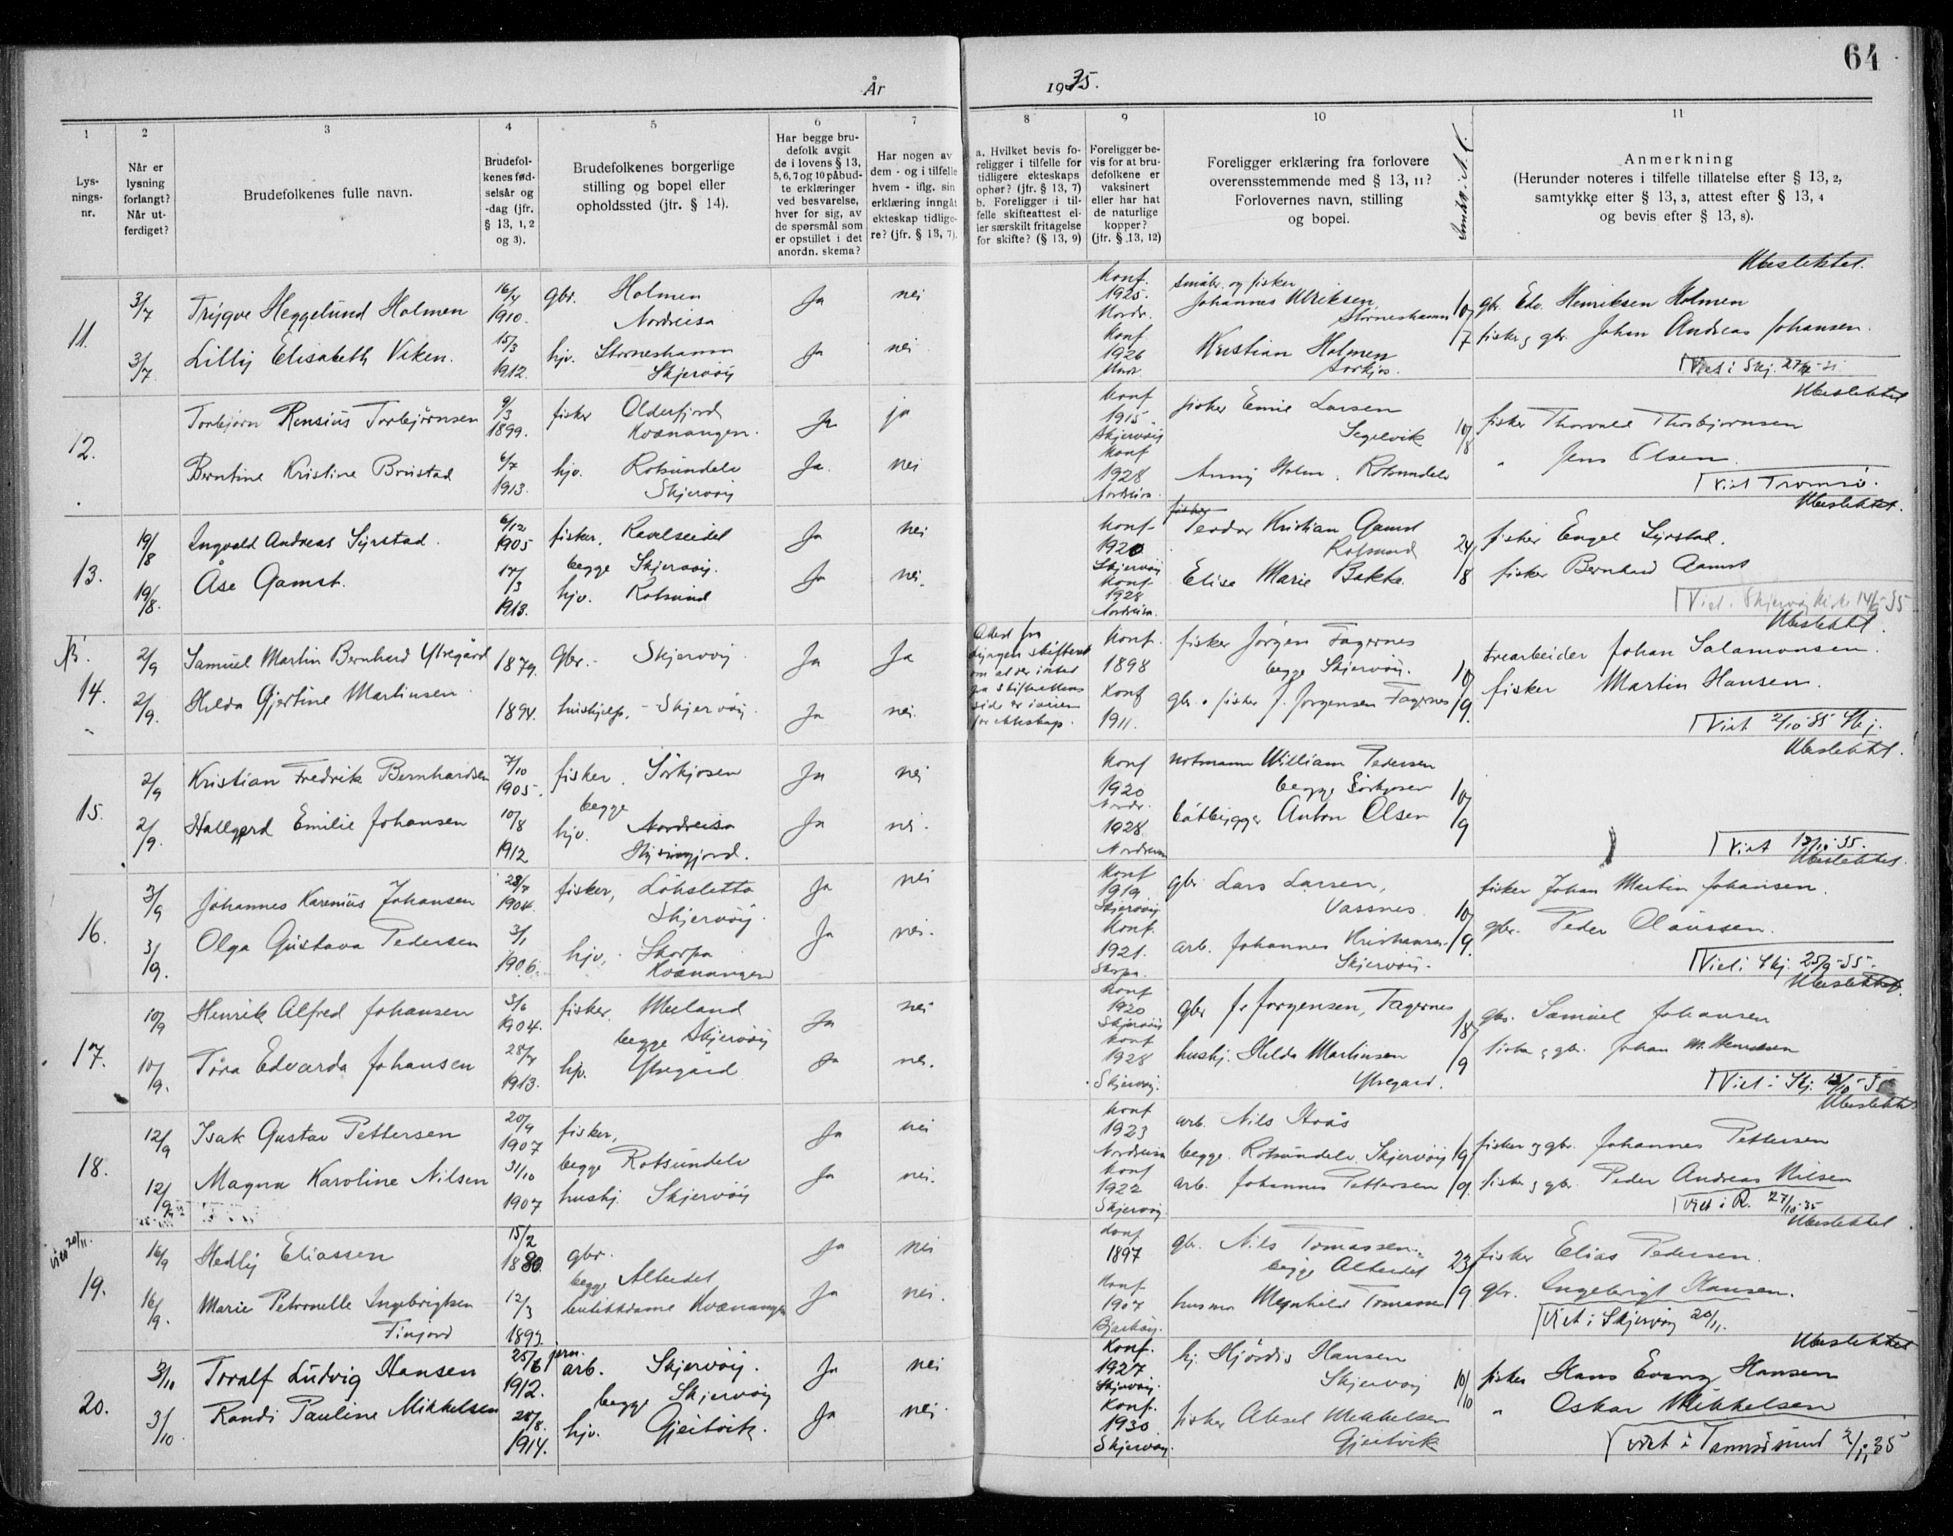 64
År 1935.
1 2 3 4 5 6 7 8 9 10 11
Lys-
nings-
nr.
Når er
lysning
forlangt?
Når ut-
ferdiget?
Brudefolkenes fulle navn.
Brudefol-
kenes fød-
selsår og
-dag (jfr.
§ 13, 1, 2
og 3).
Brudefolkenes borgerlige
stilling og bopel eller
opholdssted (jfr. § 14).
Har begge bru-
defolk avgit
de i lovens § 13,
5, 6, 7 og 10 påbud-
te erklæringer
ved besvarelse,
hver for sig, av
de spørsmål som
er opstillet i det
anordn. skema?
Har nogen av
dem - og i tilfelle
hvem - iflg. sin
erklæring inngått
ekteskap tidlige-
re? (jfr. § 13, 7).
a. Hvilket bevis fo-
religger i tilfelle for
tidligere ekteskaps
ophør? (jfr. § 13, 7)
b. Foreligger i til-
felle skifteattest el-
ler særskilt fritagelse
for skifte? (§ 13, 9)
Foreligger be-
vis for at bru-
defolkene er
vaksinert
eller har hat
de naturlige
kopper?
(jfr. § 13, 12)
Foreligger erklæring fra forlovere
overensstemmende med § 13, 11?
Forlovernes navn, stilling
og bopel.
Anmerkning
(Herunder noteres i tilfelle tillatelse efter § 13, 2,
samtykke efter § 13, 3, attest efter § 13, 4
og bevis efter § 13, 8).
11.
3/7 Trygve Heggelund Holmen 16/4 1910. gbr. Holmen Nordreisa Ja nei Konf. 1925. Nordr. småbr. og fisker Johannes Ulriksen, Storneshamn 10/7 gbr. Edv. Henriksen Holmen
Ubeslektet.
3/7 Lilly Elisabeth Viken. 15/3 1912. hjv. Storneshamn Skjervøy Ja nei Konf 1926 Kristian Holmen Sørkjos. fisker og gbr. Johan Andreas Johansen.
12.
Torbjørn Rensius Torbjørnsen 9/3 1899. fisker Olderfjord Kvænangen. Ja ja Konf 1915. Skjervøy fisker Emil Larsen Segelvik 10/8 fisker Thorvald Thorbjørnsen
Ubeslektet
Berntine Kristine Brustad 6/7 1913. hjv. Rotsundelv Skjervøy Ja. nei Konf 1928 Nordreisa. Anny Holm, Rotsundelv " Jens Olsen.
Viet Tromsø.
13.
19/8 Ingvald Andreas Syrstad. 6/12 1905 fisker, Ravelseidet Ja nei Konf. 1920 Skjervøy Teodor Kristian Gamst Rotsund 24/8 fisker Engel Syrstad.
Ubeslektet.
19/8. Åse Gamst. 17/3 1913. begge Skjervøy. hjv. Rotsund Ja nei. Konf. 1928 Nordreisa. Elise Marie Bakke fisker Bernhard Gamst
14.
2/9 Samuel Martin Bernhard Ytregård 1879. Gbr. - Skjervøy Ja Ja Konf. 1898 fisker Jørgen Fagernes begge Skjervøy. 10/9. trearbeider Johan Salamonsen.
Ubeslektet.
2/9. Hilda Gjertine Martinsen 1894. hushjelp, - Skjervøy. Ja nei. Konf 1911. gbr. o fisker J. Jørgensen Fagernes fisker Martin Hansen.
Viet 2/10-35 Skj.
15.
2/9 Kristian Fredrik Bernhardsen 7/10 1905. fisker. Sørkjosen Ja nei Konf 1920 Nordr. notmann William Pedersen begge Sørkjosen 10/9
Ubeslektet.
2/9. Hallgerd Emilie Johansen 10/8 1912 begge hjv. Nordreisa Ja nei. 1928 Nordreisa båtbygger Anton Olsen
16.
3/9 Johannes Karenius Johansen 28/7 1904. fisker, Løksletta Skjervøy. Ja nei Konf 1919 Skjervøy gbr Lars Larsen, Vassnes 10/9. fisker Johan Martin Johansen.
Ubeslektet.
3/9. Olga Gustava Pedersen 3/1 1906. hjv. Skorpa Kvænangen Ja nei. Konf. 1921. Skorpa. arb. Johannes Kristiansen Skjervøy. gbr. Peder Claussen.
Viet i Skj. 25/9-35.
17.
10/9 Henrik Alfred Johansen 3/6 1904. fisker Meiland begge Skjervøy Ja nei Konf 1920 Skjervøy gbr J. Jørgensen, Fagernes 18/9 gbr. Samuel Johansen
Ubeslektet.
10/9. Tøra Edvarda Johansen 1913. hjv. Ytregård Ja nei. Konf 1928 Skjervøy. hushj. Hilda Martinsen Ytregård. fisker og gbr. Johan
18.
12/9 Isak Gustav Pettersen 20/9 1907 fisker, Ja nei Konf 1923 Nordreisa arb. Nils Aras 19/9. fisker og gbr. Johannes Pettersen
Ubeslektet
12/9 Magna Karoline Nilsen 31/10 1907 begge Rotsundelv hushj Skjervøy Ja nei. Konf 1922 Skjervøy. begge Rotsundelv. Skjervøy arb. Johannes Pettersen fisker og gbr. Peder Andreas Nilsen
Viet i R. 27/10-35
19.
16/9 Hedly Eliassen 15/2 1880. gbr. Ja nei Konf 1897 gbr. Nils Tomassen begge Alteidet 23/9 fisker Elias Pedersen.
Ubeslektet
16/9. Marie Petronelle Ingebrigtsen Finjord 12/3 1892 begge Alteidet butikkdame Kvænangen Ja nei. Konf 1907 Bjarkøy. Meynhild Tomassen gbr. Ingebrigt Hansen.
Viet i Skjervøy 20/11.
20.
3/10 Toralf Ludvig Hansen 25/6 1912. arb. Skjervøy. Ja nei Konf. 1927 Skjervøy. hj. Hjørdis Hansen Skjervøy 10/10 fisker Hans Evang Hansen
Ubeslektet
3/10 Randi Pauline Mikkelsen 28/8. 1914. begge Skjervøy hjv. Gjeitvik. Ja nei Konf. 1930 Skjervøy. fisker Aksel Mikkelsen Gjeitvik " Oskar Mikkelsen